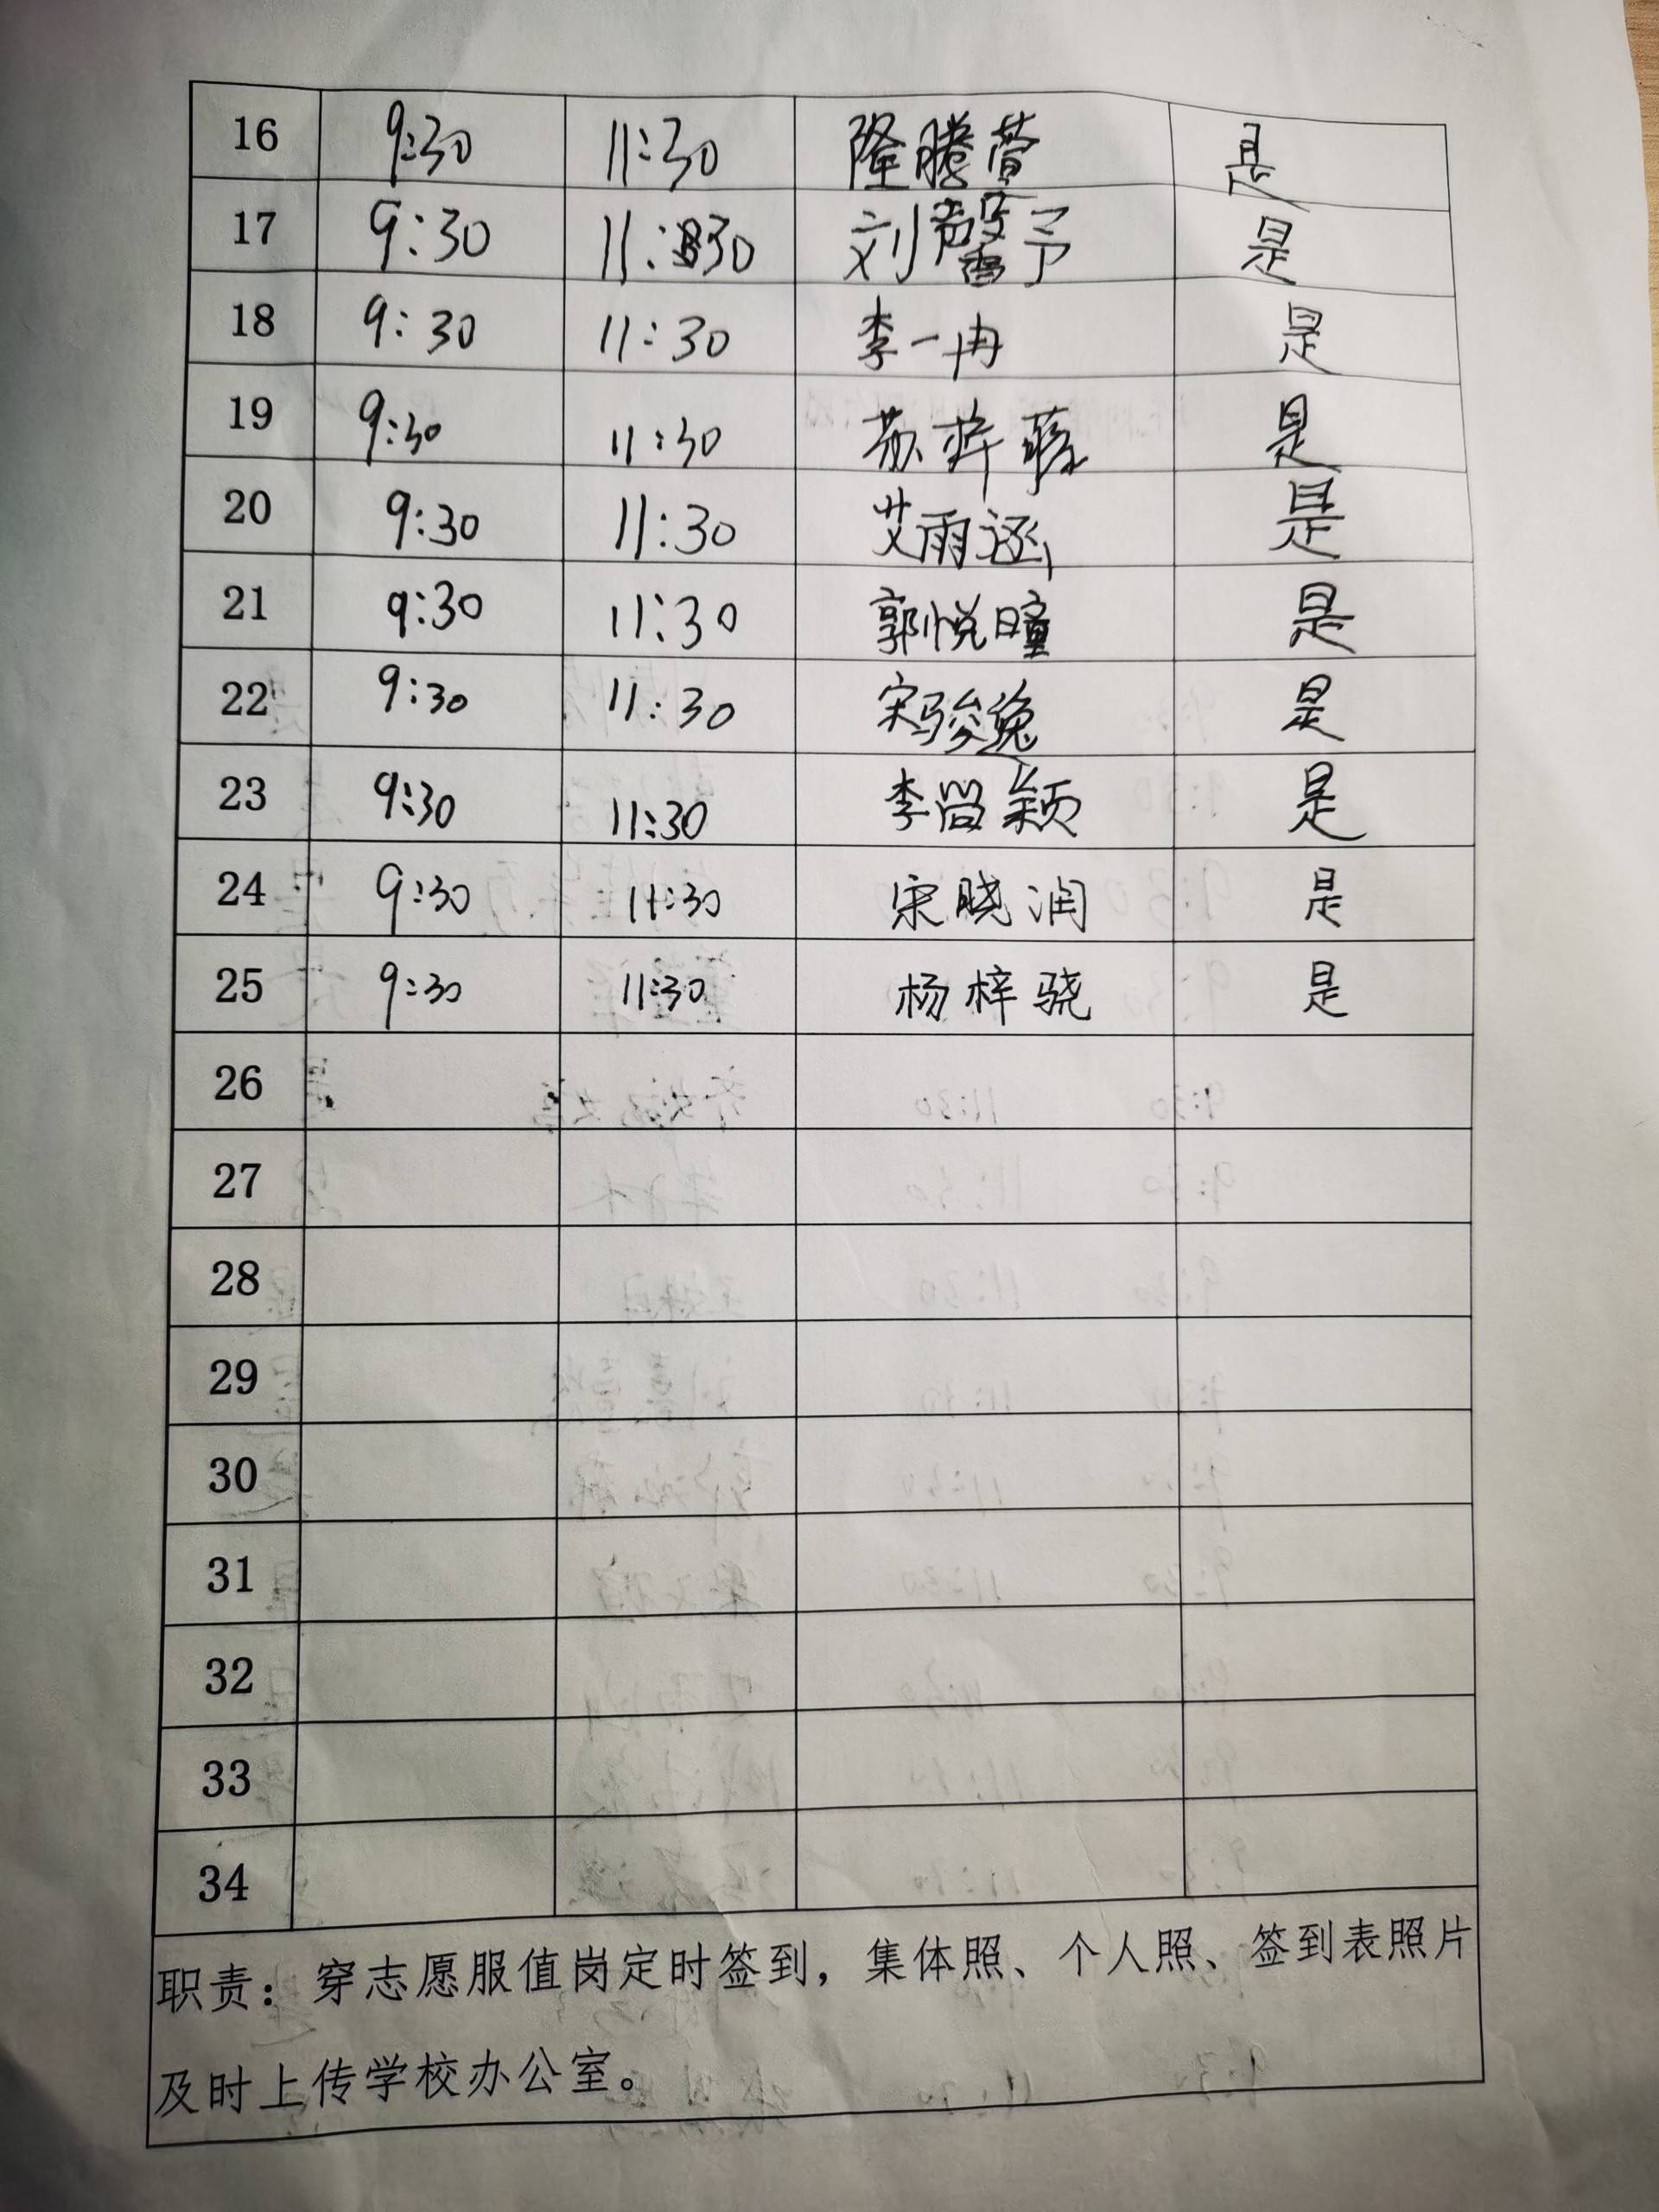 16 9:30 11:30 隆腾萱 是
17 9:30 11:30 刘馨予 是
18 9:30 11:30 李一冉 是
19 9:30 11:30 苏梓 是
20 9:30 11:30 艾雨涵 是
21 9:30 11:30 郭悦曈 是
22 9:30 11:30 宋骏逸 是
23 9:30 11:30 李尚颖 是
24 9:30 11:30 宋晓润 是
25 9:30 11:30 杨梓骁 是
26
27
28
29
30
31
32
33
34
职责：穿志愿服值岗定时签到，集体照、个人照、签到表照片
及时上传学校办公室。